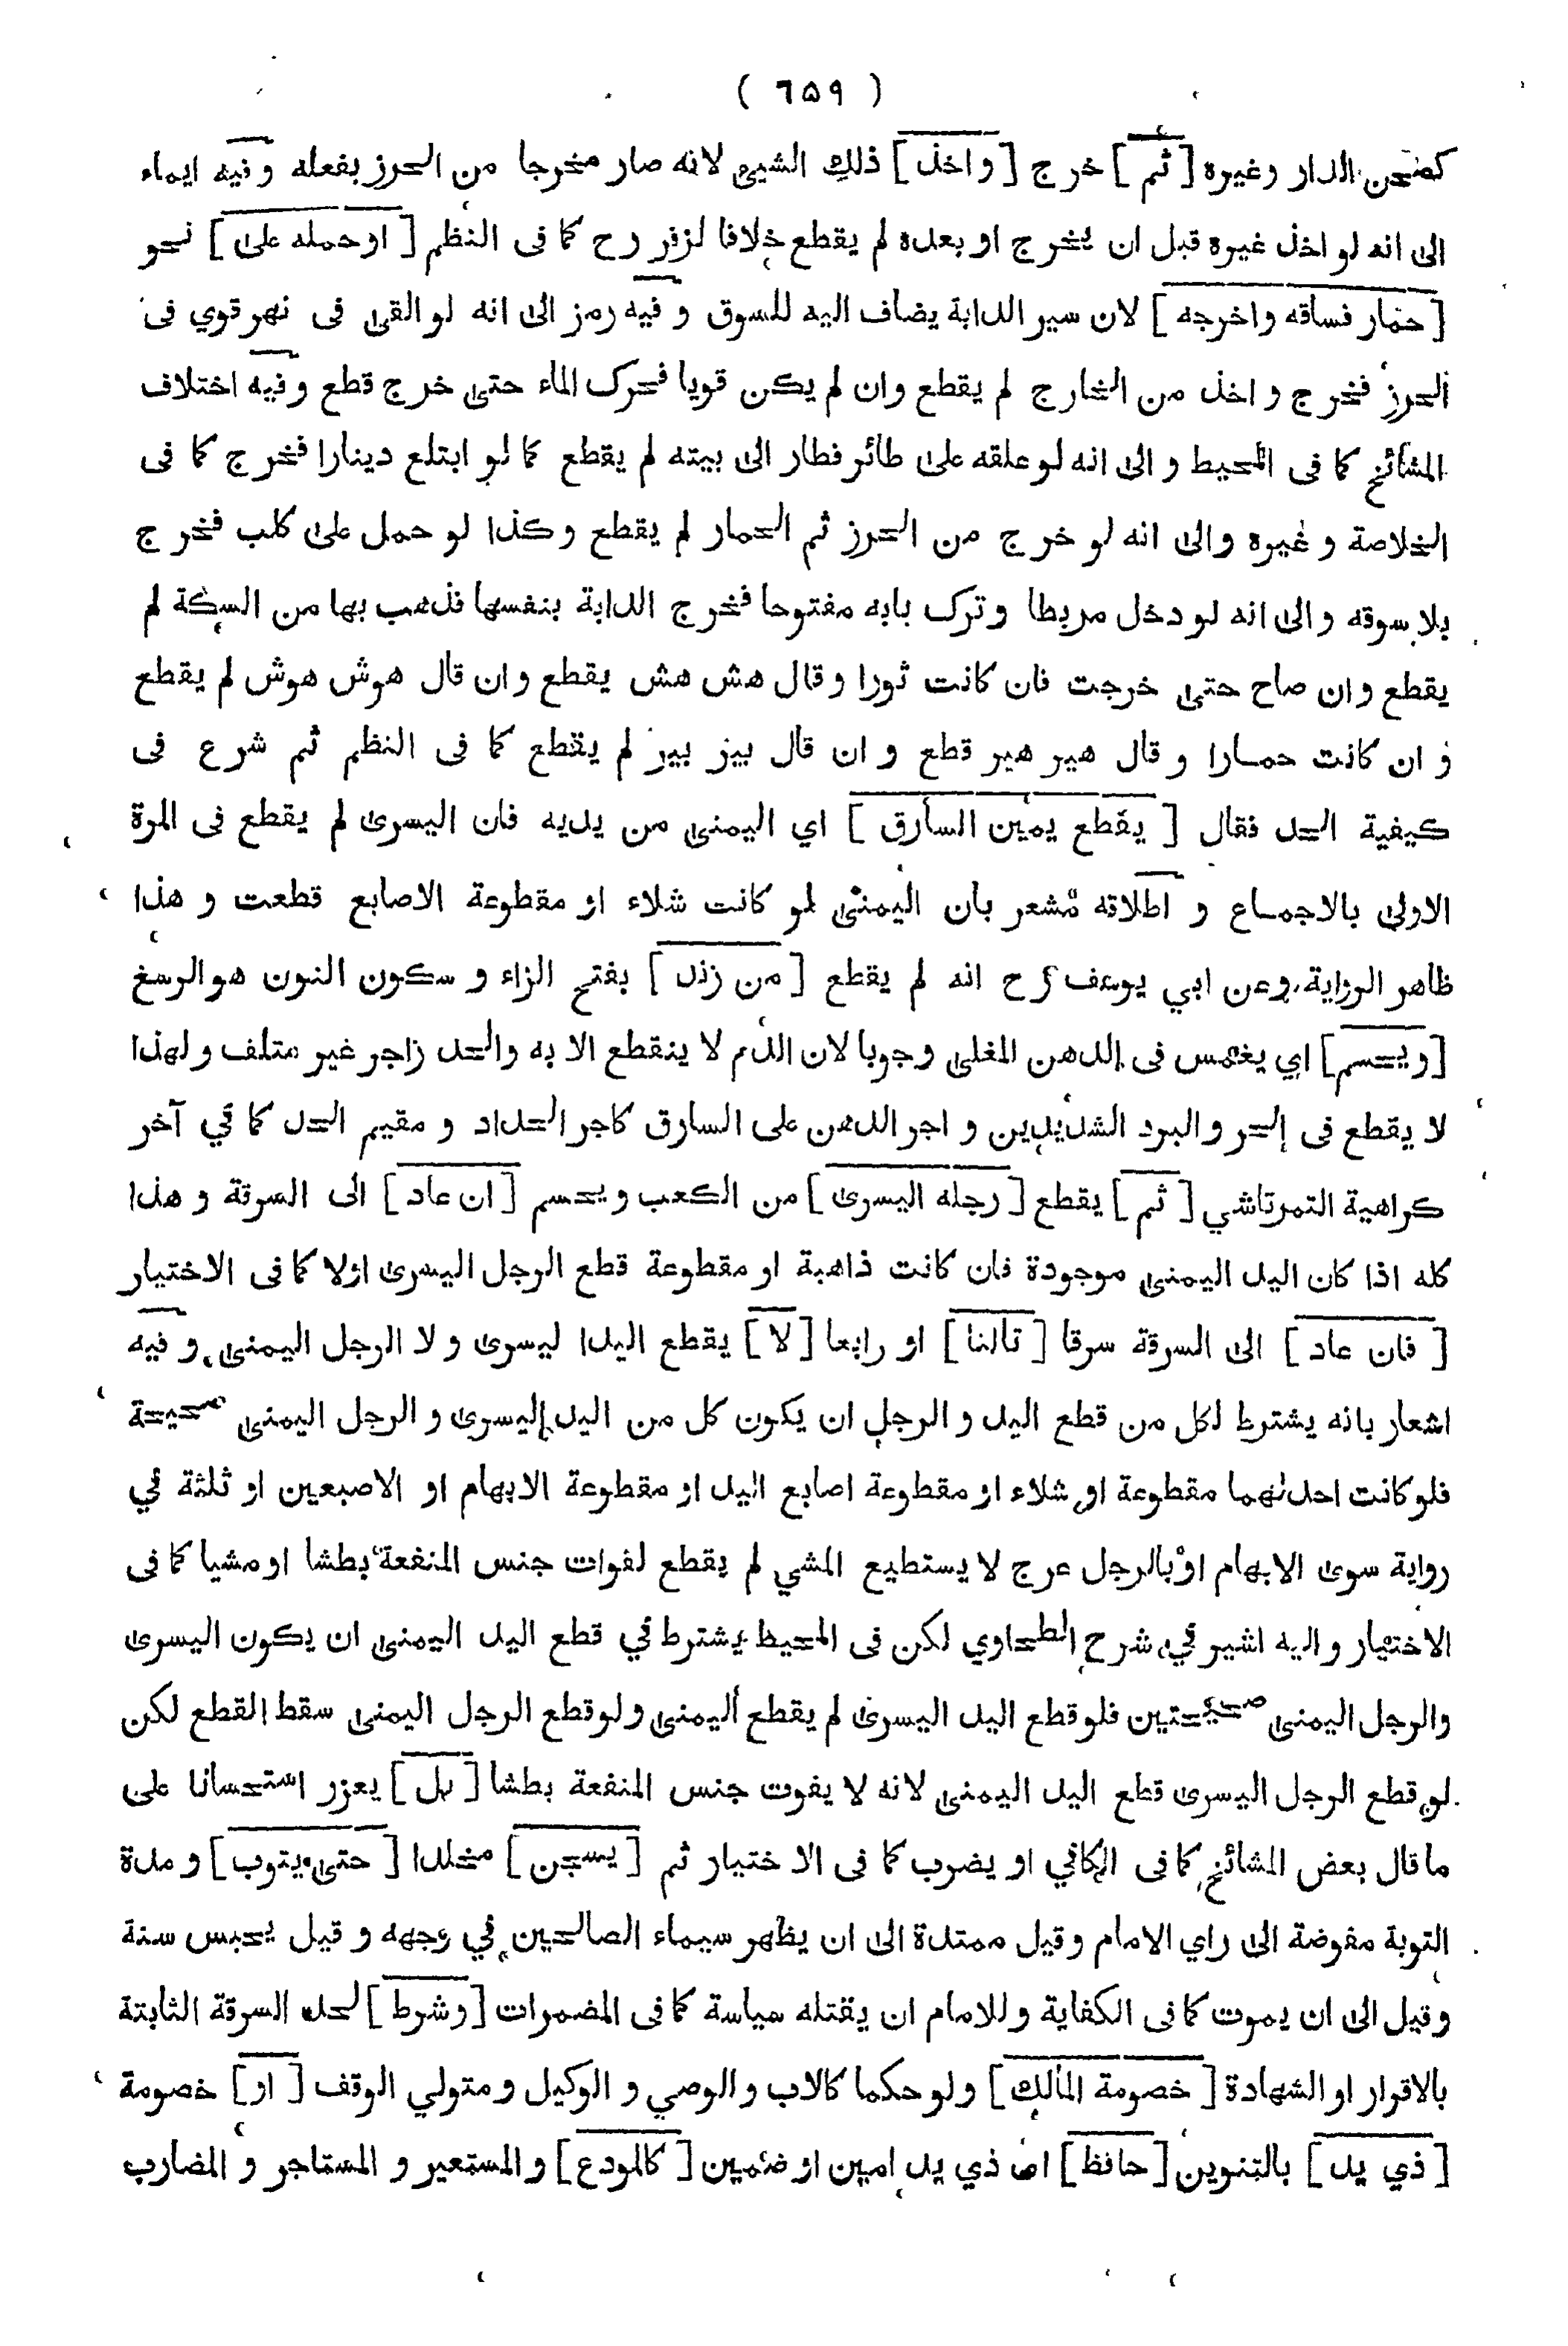 ( ٦٥٩ )
كصحن الدار وغيره [ ثم ] خرج [ و اخذ ] ذلك الشيئ لانه صار مخرجا من الحرز بفعله و فيه ايماء
الى انه لو اخذ غيره قبل ان يخرج او بعده لم يقطع خلافا لزفر رح كما فى النظم [ او حمله على ] نحو
[ حمار فساقه و اخرجه ] لان سير الدابة يضاف اليه للسوق و فيه رمز الى انه لو القى فى نهر قوي فى
الحرز فخرج و اخذ من الخارج لم يقطع وان لم يكن قويا فحرك الماء حتى خرج قطع و فيه اختلاف
المشائخ كما فى المحيط و الى انه لو علقه على طائر فطار الى بيته لم يقطع كما لو ابتلع دينارا فخرج كما فى
الخلاصة و غيره والى انه لو خرج من الحرز ثم الحمار لم يقطع و كذا لو حمل على كلب فخرج
بلا سوقه و الى انه لو دخل مربطا وترك بابه مفتوحا فخرج الدابة بنفسها فذهب بها من السكة لم
يقطع و ان صاح حتى خرجت فان كانت ثورا و قال هش هش يقطع و ان قال هوش هوش لم يقطع
و ان كانت حمارا و قال هير هير قطع و ان قال بيز بيز لم يقطع كما فى النظم ثم شرع فى
كيفية الحد فقال [ يقطع يمين السارق ] اي اليمنى من يديه فان اليسرى لم يقطع فى المرة
الاولى بالاجماع و اطلاقه مشعر بان اليمنى لو كانت شلاء او مقطوعة الاصابع قطعت و هذا
ظاهر الرواية و عن ابي يوسف رح انه لم يقطع [ من زند ] بفتح الزاء و سكون النون هو الرسغ
[ و يحسم ] اي يغمس فى الدهن المغلى وجوبا لان الدم لا ينقطع الا به والحد زاجر غير متلف و لهذا
لا يقطع فى الحر و البرد الشديدين و اجر الدهن على السارق كاجر الحداد و مقيم الحد كما في آخر
كراهية التمرتاشي [ ثم ] يقطع [ رجله اليسرى ] من الكعب و يحسم [ ان عاد ] الى السرقة و هذا
كله اذا كان اليد اليمنى موجودة فان كانت ذاهبة او مقطوعة قطع الرجل اليسرى اولا كما فى الاختيار
[ فان عاد ] الى السرقة سرقا [ ثالثا ] او رابعا [ لا ] يقطع اليدا ليسرى و لا الرجل اليمنى و فيه
اشعار بانه يشترط لكل من قطع اليد و الرجل ان يكون كل من اليد اليسرى و الرجل اليمنى صحيحة
فلو كانت احدلهما مقطوعة او شلاء او مقطوعة اصابع اليد او مقطوعة الابهام او الاصبعين او ثلثة في
رواية سوى الابهام او بالرجل عرج لا يستطيع المشي لم يقطع لفوات جنس المنفعة بطشا او مشيا كما فى
الاختيار و اليه اشير في شرح الطحاوي لكن فى المحيط يشترط في قطع اليد اليمنى ان يكون اليسرى
والرجل اليمنى صحيحتين فلو قطع اليد اليسرى لم يقطع اليمنى و لو قطع الرجل اليمنى سقط القطع لكن
لو قطع الرجل اليسرى قطع اليد اليمنى لانه لا يفوت جنس المنفعة بطشا [ بل ] يعزر استحسانا على
ما قال بعض المشائخ كما فى الكافي او يضرب كما فى الا ختيار ثم [ يسجن ] مخلدا [ حتى يتوب ] و مدة
التوبة مفوضة الى راي الامام و قيل ممتدة الى ان يظهر سيماء الصالحين في وجهه و قيل يحبس سنة
و قيل الى ان يموت كما فى الكفاية و للامام ان يقتله سياسة كما فى المضمرات [ و شرط ] لحد السرقة الثابتة
بالاقرار او الشهادة [ خصومة المالك ] و لو حكما كالاب و الوصي و الوكيل و متولي الوقف [ او ] خصومة
[ ذي يد ] بالتنوين [ حافظ ] اى ذي يد امين او ضمين [ كالمودع ] و المستعير و المستاجر و المضارب